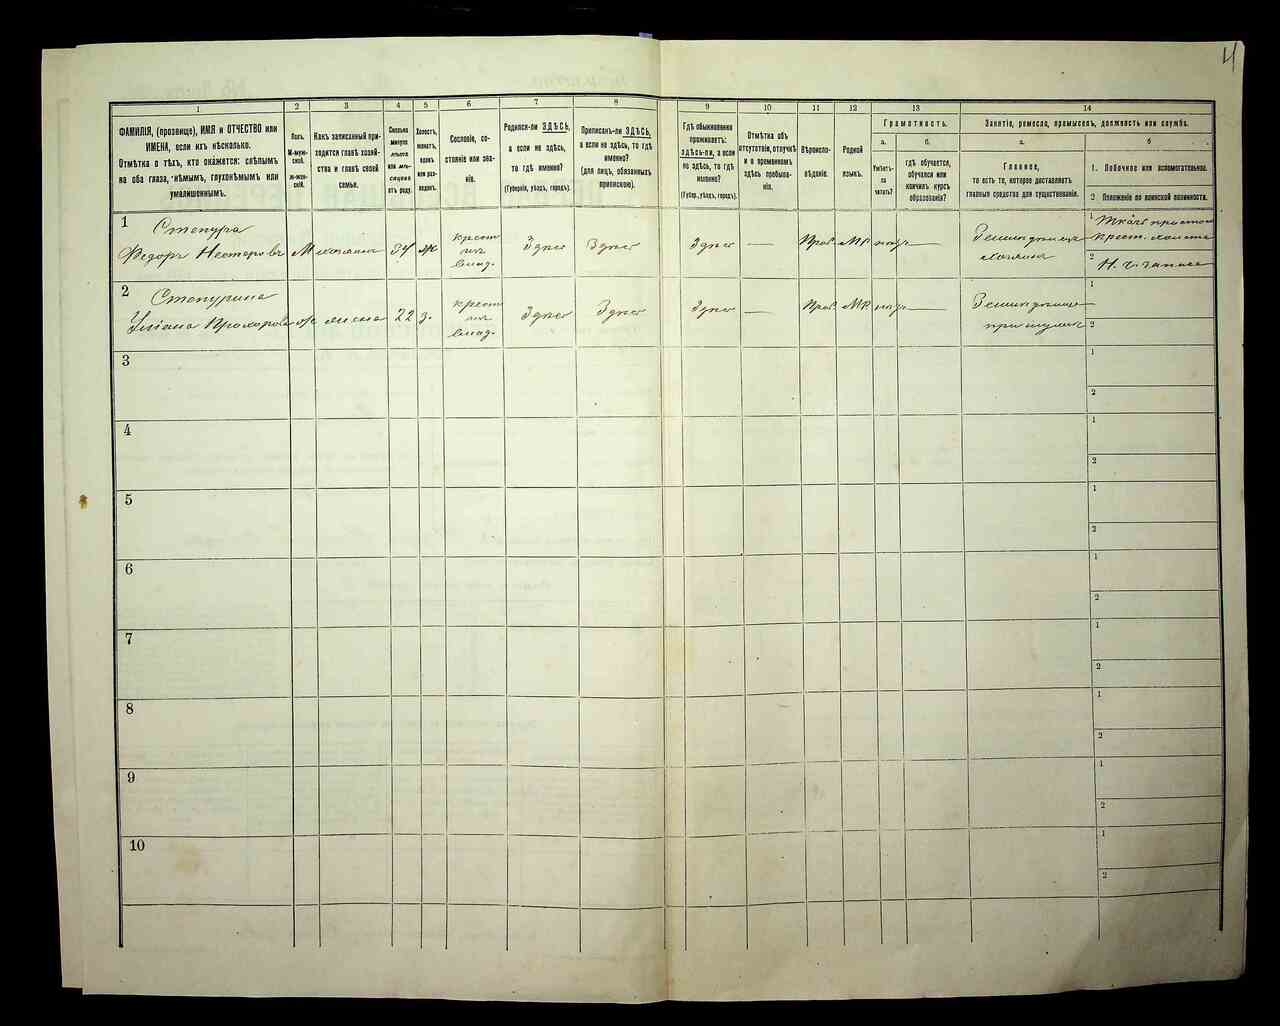 4
1
2
3
4
5
6
7
8
9
10
11
12
13
14
ФАМИЛІЯ, (прозвище), ИМЯ и ОТЧЕСТВО или
ИМЕНА, если ихъ нѣсколько.
Отмѣтка о тѣхъ, кто окажется: слѣпымъ
на оба глаза, нѣмымъ, глухонѣмымъ или
умалишеннымъ.
Полъ.
М-муж-
ской.
ж-жен-
скій.
Какъ записанный при-
ходится главѣ хозяй-
ства и главѣ своей
семьи.
Сколько
минуло
лѣтъ
или мѣ-
сяцевъ
отъ роду.
Холостъ,
женатъ,
вдовъ
или раз-
веденъ.
Сословіе, со-
стояніе или зва-
ніе.
Родился-ли ЗДѢСЬ,
а если не здѣсь,
то гдѣ именно?
(Губернія, уѣздъ, городъ).
Приписанъ-ли ЗДѢСЬ,
а если не здѣсь, то гдѣ
именно?
(для лицъ, обязанныхъ
припискою).
Гдѣ обыкновенно
проживаетъ:
здѣсь-ли, а если
не здѣсь, то гдѣ
именно?
(Губер., уѣздъ, городъ).
Отмѣтка объ
отсутствіи, отлучкѣ
и о временномъ
здѣсь пребыва-
ніи.
Вѣроиспо-
вѣданіе.
Родной
языкъ.
Грамотность.
а.
б.
Умѣетъ-
ли
читать?
гдѣ обучается,
обучался или
кончилъ курсъ
образованія?
Занятіе, ремесло, промыселъ, должность или служба.
а.
б
Главное,
то есть то, которое доставляетъ
главныя средства для существованія.
1. Побочное или вспомогательное.
2 Положеніе по воинской повинности.
1
Степура
Федоръ Нестеровъ
М
хозяинъ
ж
крест
изъ
влад.
Здѣсь
Здѣсь
Здѣсь
—
Прав.
МР
нѣтъ
—
Земледѣлецъ
хозяинъ
1
Ткачъ простой
крест. холста
2
2
Степурина
Уліана Прохорова
ж
жена
22
з.
крест
изъ
влад.
Здѣсь
Здѣсь
Здѣсь
—
Прав.
МР.
нѣтъ
—
Земледѣлие
при мужѣ
1
2
3
1
2
4
1
2
5
1
2
6
1
2
7
1
2
8
1
2
9
1
2
10
1
2